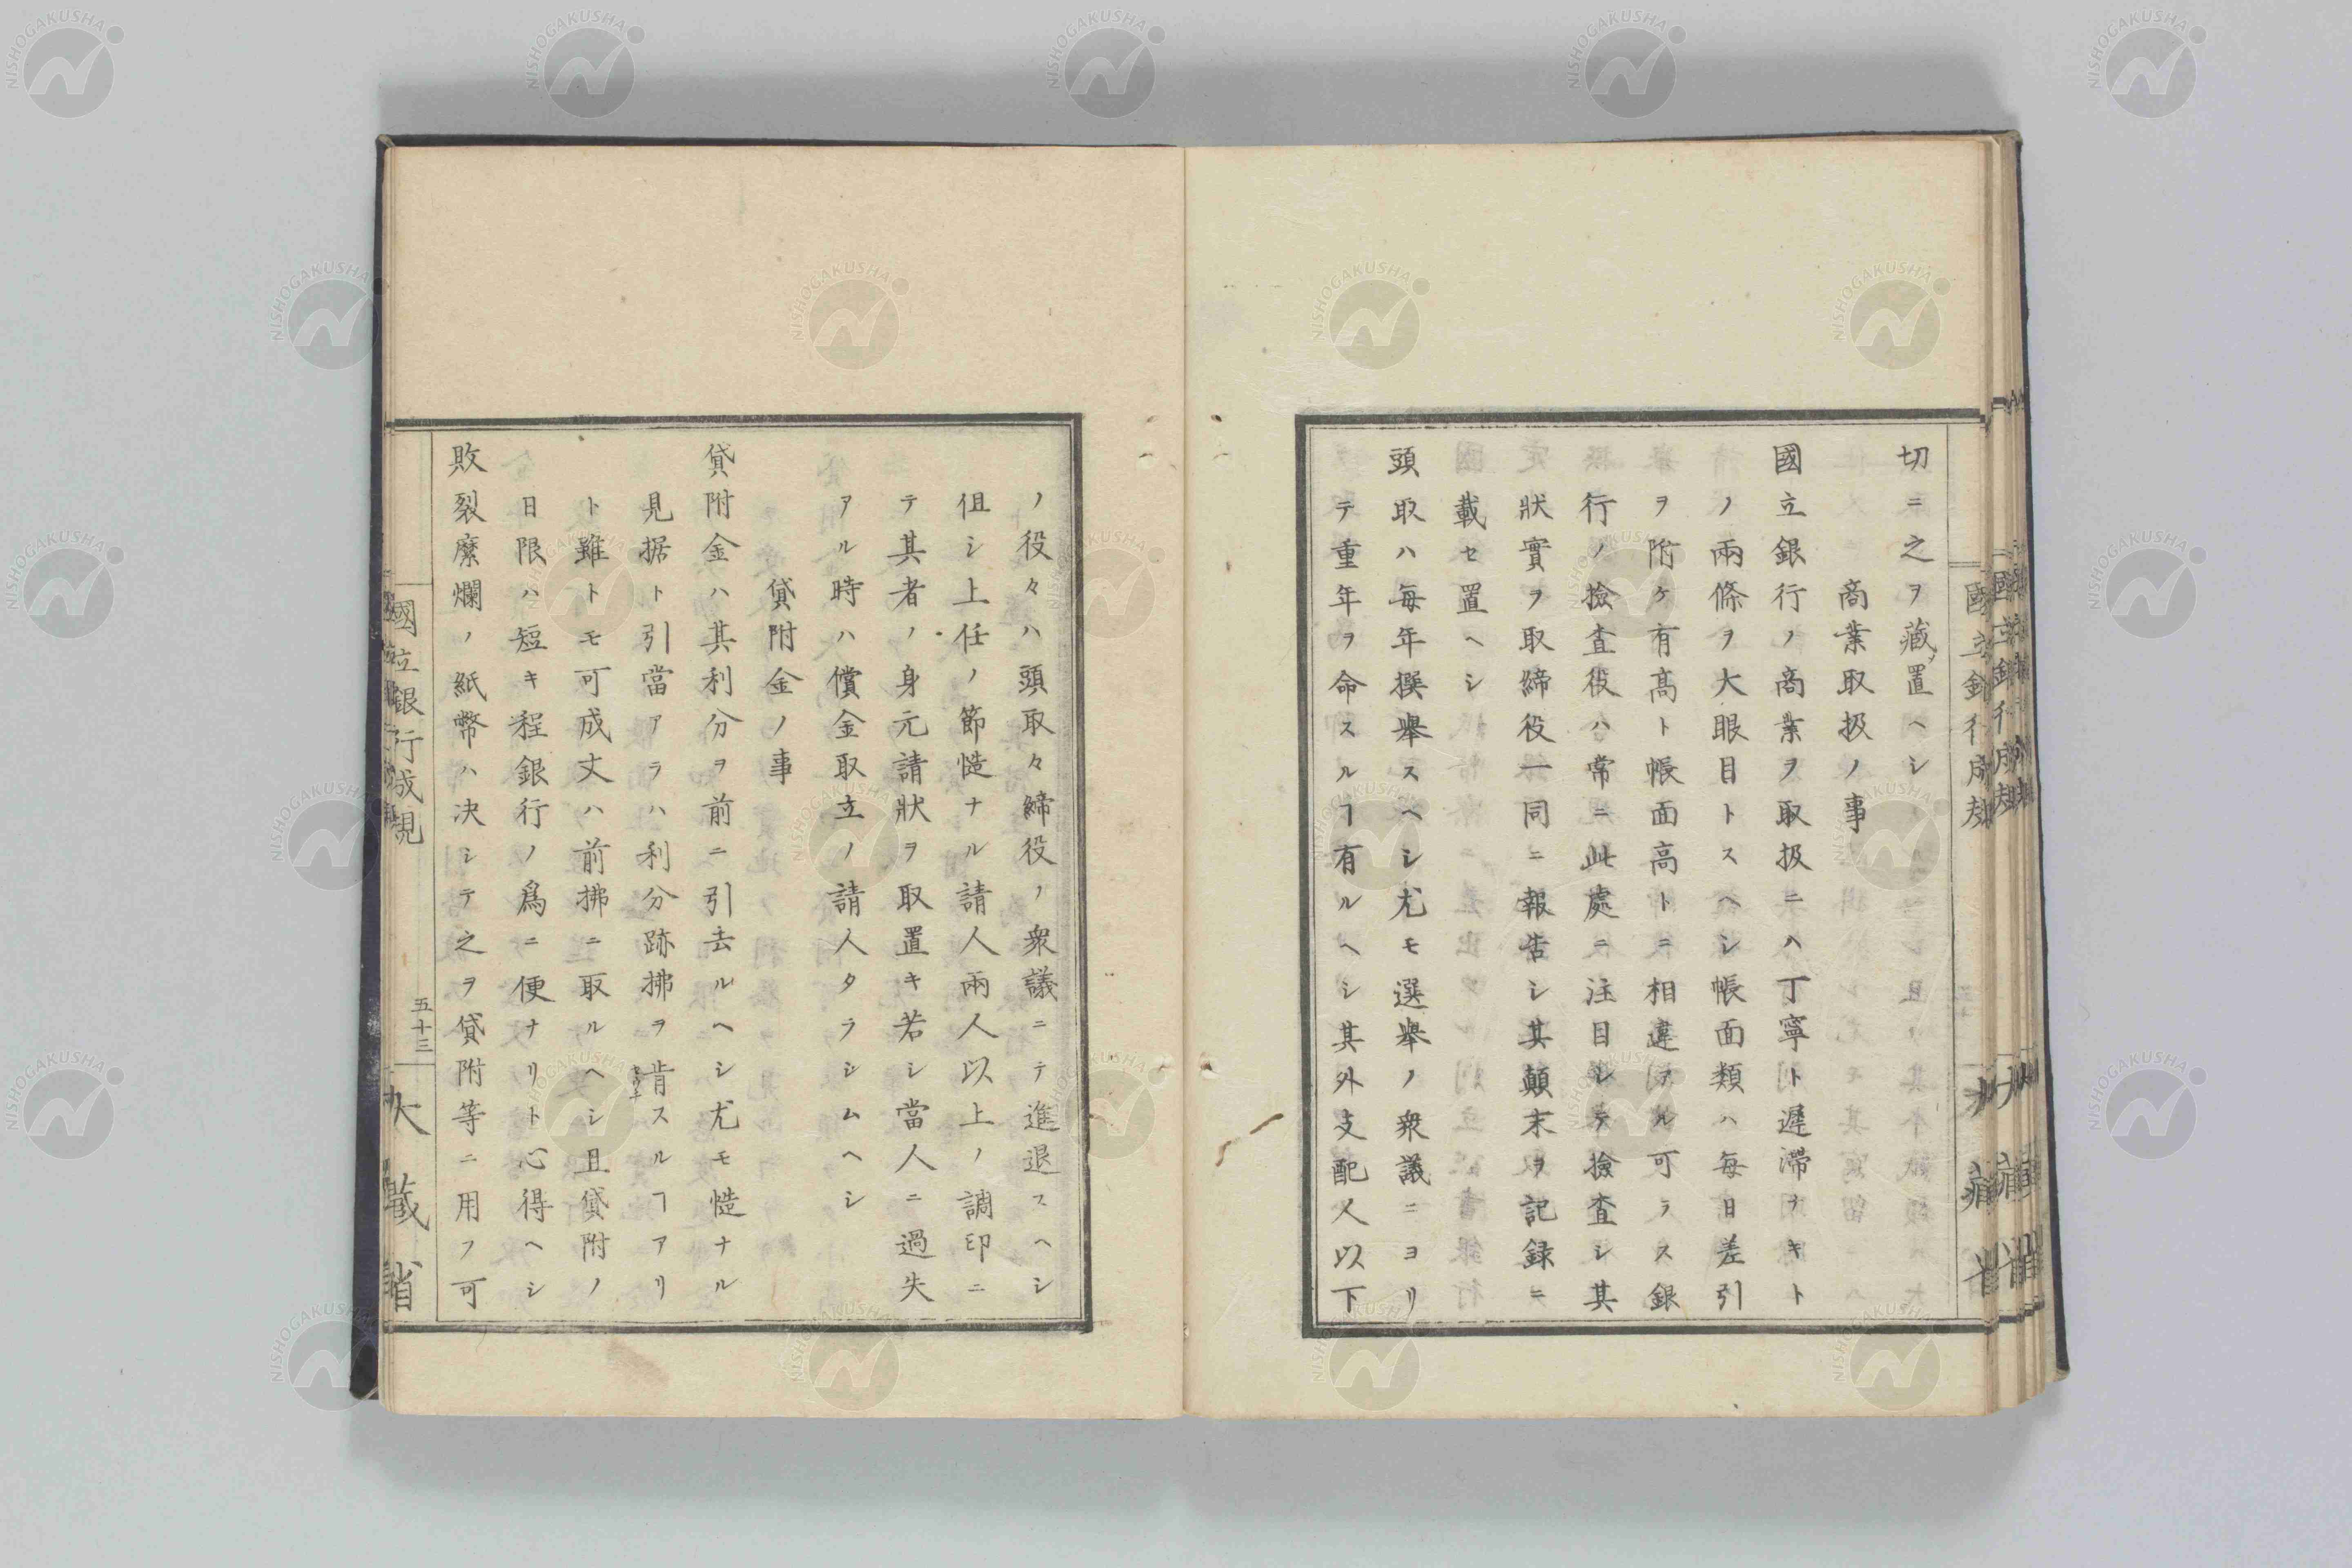 切ニ之ヲ藏置ヘシ
商業取扱ノ事
國立銀行ノ商業ヲ取扱ニハ丁寧ト遲滯ナキト
ノ兩條ヲ大眼目トスヘシ帳面類ハ毎日差引
ヲ附ケ有髙ト帳面高トニ相違アル可ラス銀
行ノ撿査役ハ常ニ此處ニ注目シテ撿査シ其
狀實ヲ取締役一同ニ報告シ其顛末ヲ記録ニ
載セ置ヘシ
頭取ハ毎年撰擧スヘシ尤モ選擧ノ衆議ニヨリ
テ重年ヲ命スルヿ有ルヘシ其外支配人以下
ノ役々ハ頭取々締役ノ衆議ニテ進退スヘシ
但シ上任ノ節慥ナル請人兩人以上ノ調印ニ
テ其者ノ身元請狀ヲ取置キ若シ當人ニ過失
アル時ハ償金取立ノ請人タラシムヘシ
貸附金ノ事
貸附金ハ其利分ヲ前ニ引去ルヘシ尤モ慥ナル
見据ト引當アラハ利分跡拂ヲ肯スルヿアリ
ト雖トモ可成丈ハ前拂ニ取ルヘシ且貸附ノ
日限ハ短キ程銀行ノ爲ニ便ナリト心得ヘシ
敗裂縻爛ノ紙幣ハ决シテ之ヲ貸附等ニ用フ可
國立銀行成規
五十三
大藏省
NISHOGAKUSHA